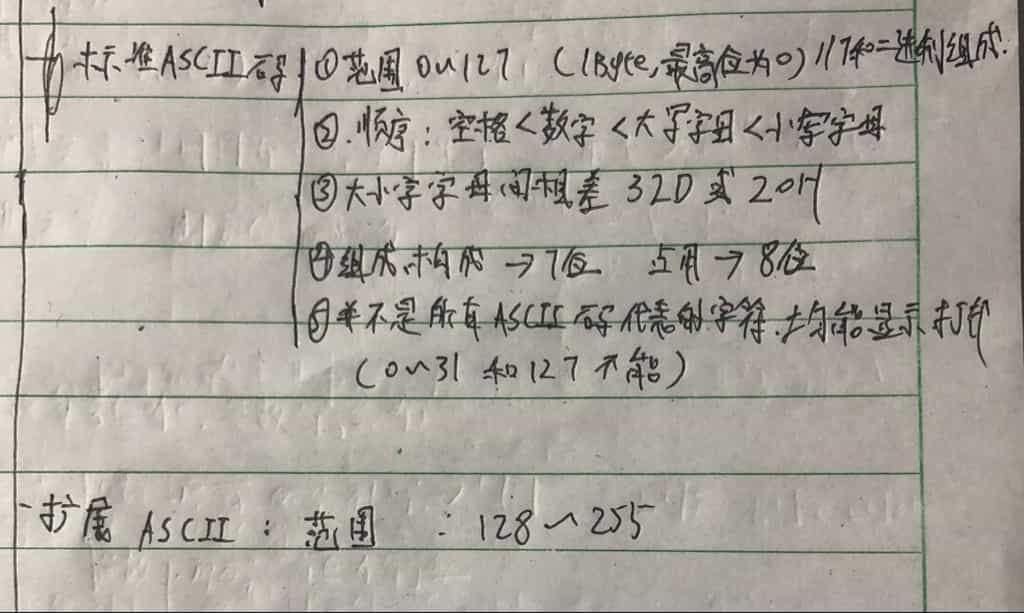 标准ASCII码 ①范围 0~127 (1Byte,最高位为0) 117和二进制组成.
②.顺序:空格<数字<大写字母<小写字母
③大小写字母间相差 32D 或 20H
④组成、构成 →7位 占用 → 8位
⑤并不是所有ASCII码代表的字符.均能显示打印
(0~31 和127不能)
-扩展 ASCII : 范围 : 128~255